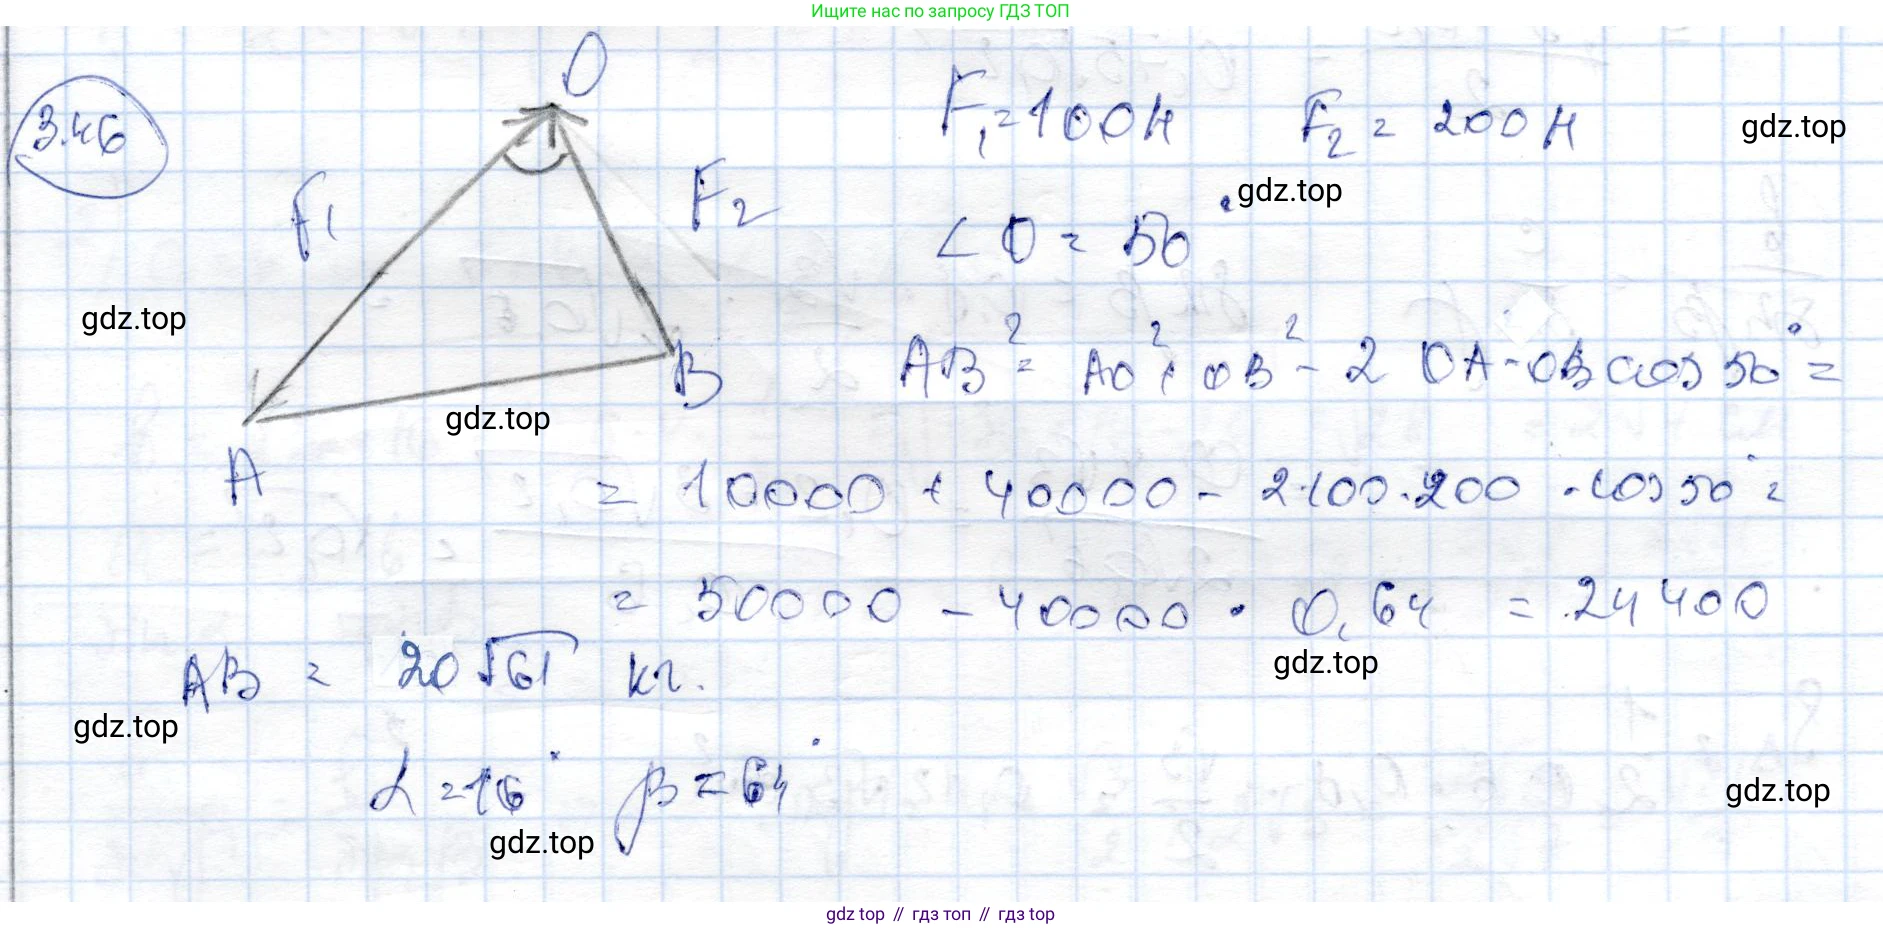 Ищите нас по запросу ГДЗ ТОП
3.46
O
F₁ = 100 Н F₂ = 200 Н
gdz.top
F₁
F₂
gdz.top
∠O = 50°
gdz.top
AB² = AO² + OB² - 2 OA · OB cos 50° =
B
gdz.top
A
= 10000 + 40000 - 2·100·200 · cos 50° =
= 50000 - 40000 · 0,64 = 24400
AB = 20√61 кг.
gdz.top
gdz.top
α = 16° β = 64°
gdz.top
gdz.top
gdz top // гдз топ // gdz top